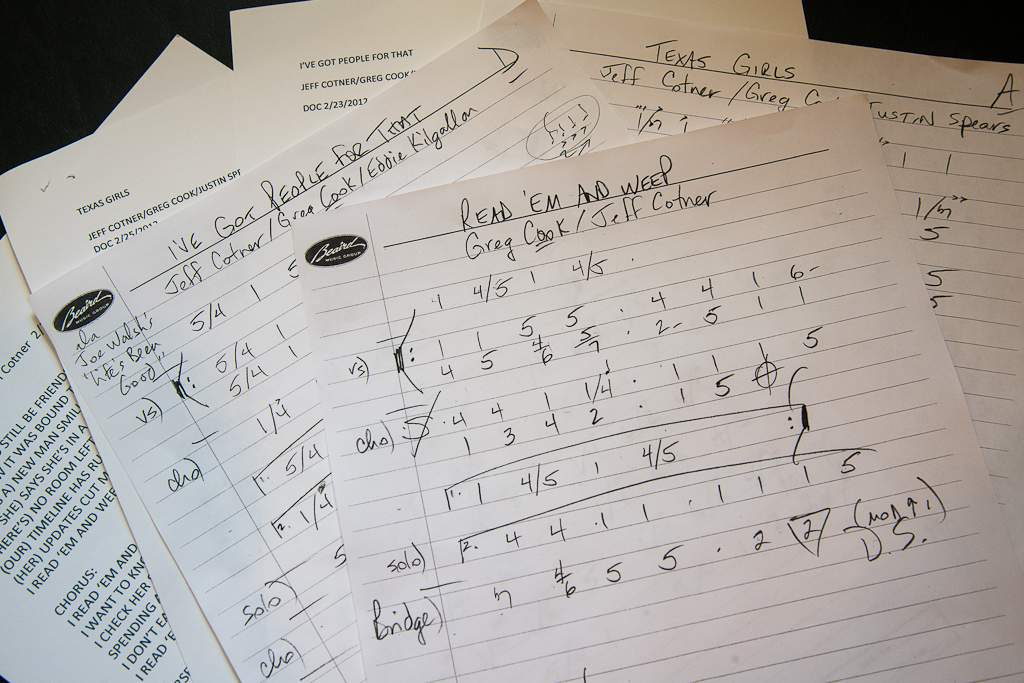 I'VE GOT PEOPLE FOR THAT
JEFF COTNER/GREG COOK/
DOC 2/23/2012
TEXAS GIRLS
JEFF COTNER/GREG COOK/JUSTIN SPE
DOC 2/25/2012
TEXAS GIRLS
A
Jeff Cotner/Greg C JUSTIN Spears
1 1
5
5
5
D
I'VE GOT PEOPLE FOR THAT
Jeff Cotner/Greg Cook/Eddie Kilgallon
Beaird
MUSIC GROUP
ala
Joe Walsh's
"Life's Been
Good"
5/4 1 5
vs) 5/4 1
5/4 1
cho) 1/4
1. 5/4
2. 1/4
solo) 5
cho)
READ 'EM AND WEEP
Greg Cook/Jeff Cotner
Beaird
MUSIC GROUP
4 4/5 1 4/5 .
vs) : 1 1 5 5 . 4 4 1 6-
4 5 4/6 5/7 . 2- 5 1 1
cho) 4 4 1 1/4 . 1 1 1 5
1 3 4 2 . 1 5
1. 1 4/5 1 4/5 :
solo) 2. 4 4 . 1 1 . 1 1 1 5
Bridge) 4/6 5 5 . 2 2 (mod ↑ 1)
D.S.
Cotner 2/
STILL BE FRIEND
W IT WAS BOUND T
A) NEW MAN SMIL
SHE) SAYS SHE'S IN A
HERE'S) NO ROOM LEFT
(OUR) TIMELINE HAS RU
(HER) UPDATES CUT M
I READ 'EM AND WEE
CHORUS:
I READ 'EM AND
I WANT TO KN
I CHECK HER
SPENDING
I DON'T EA
I READ 'E